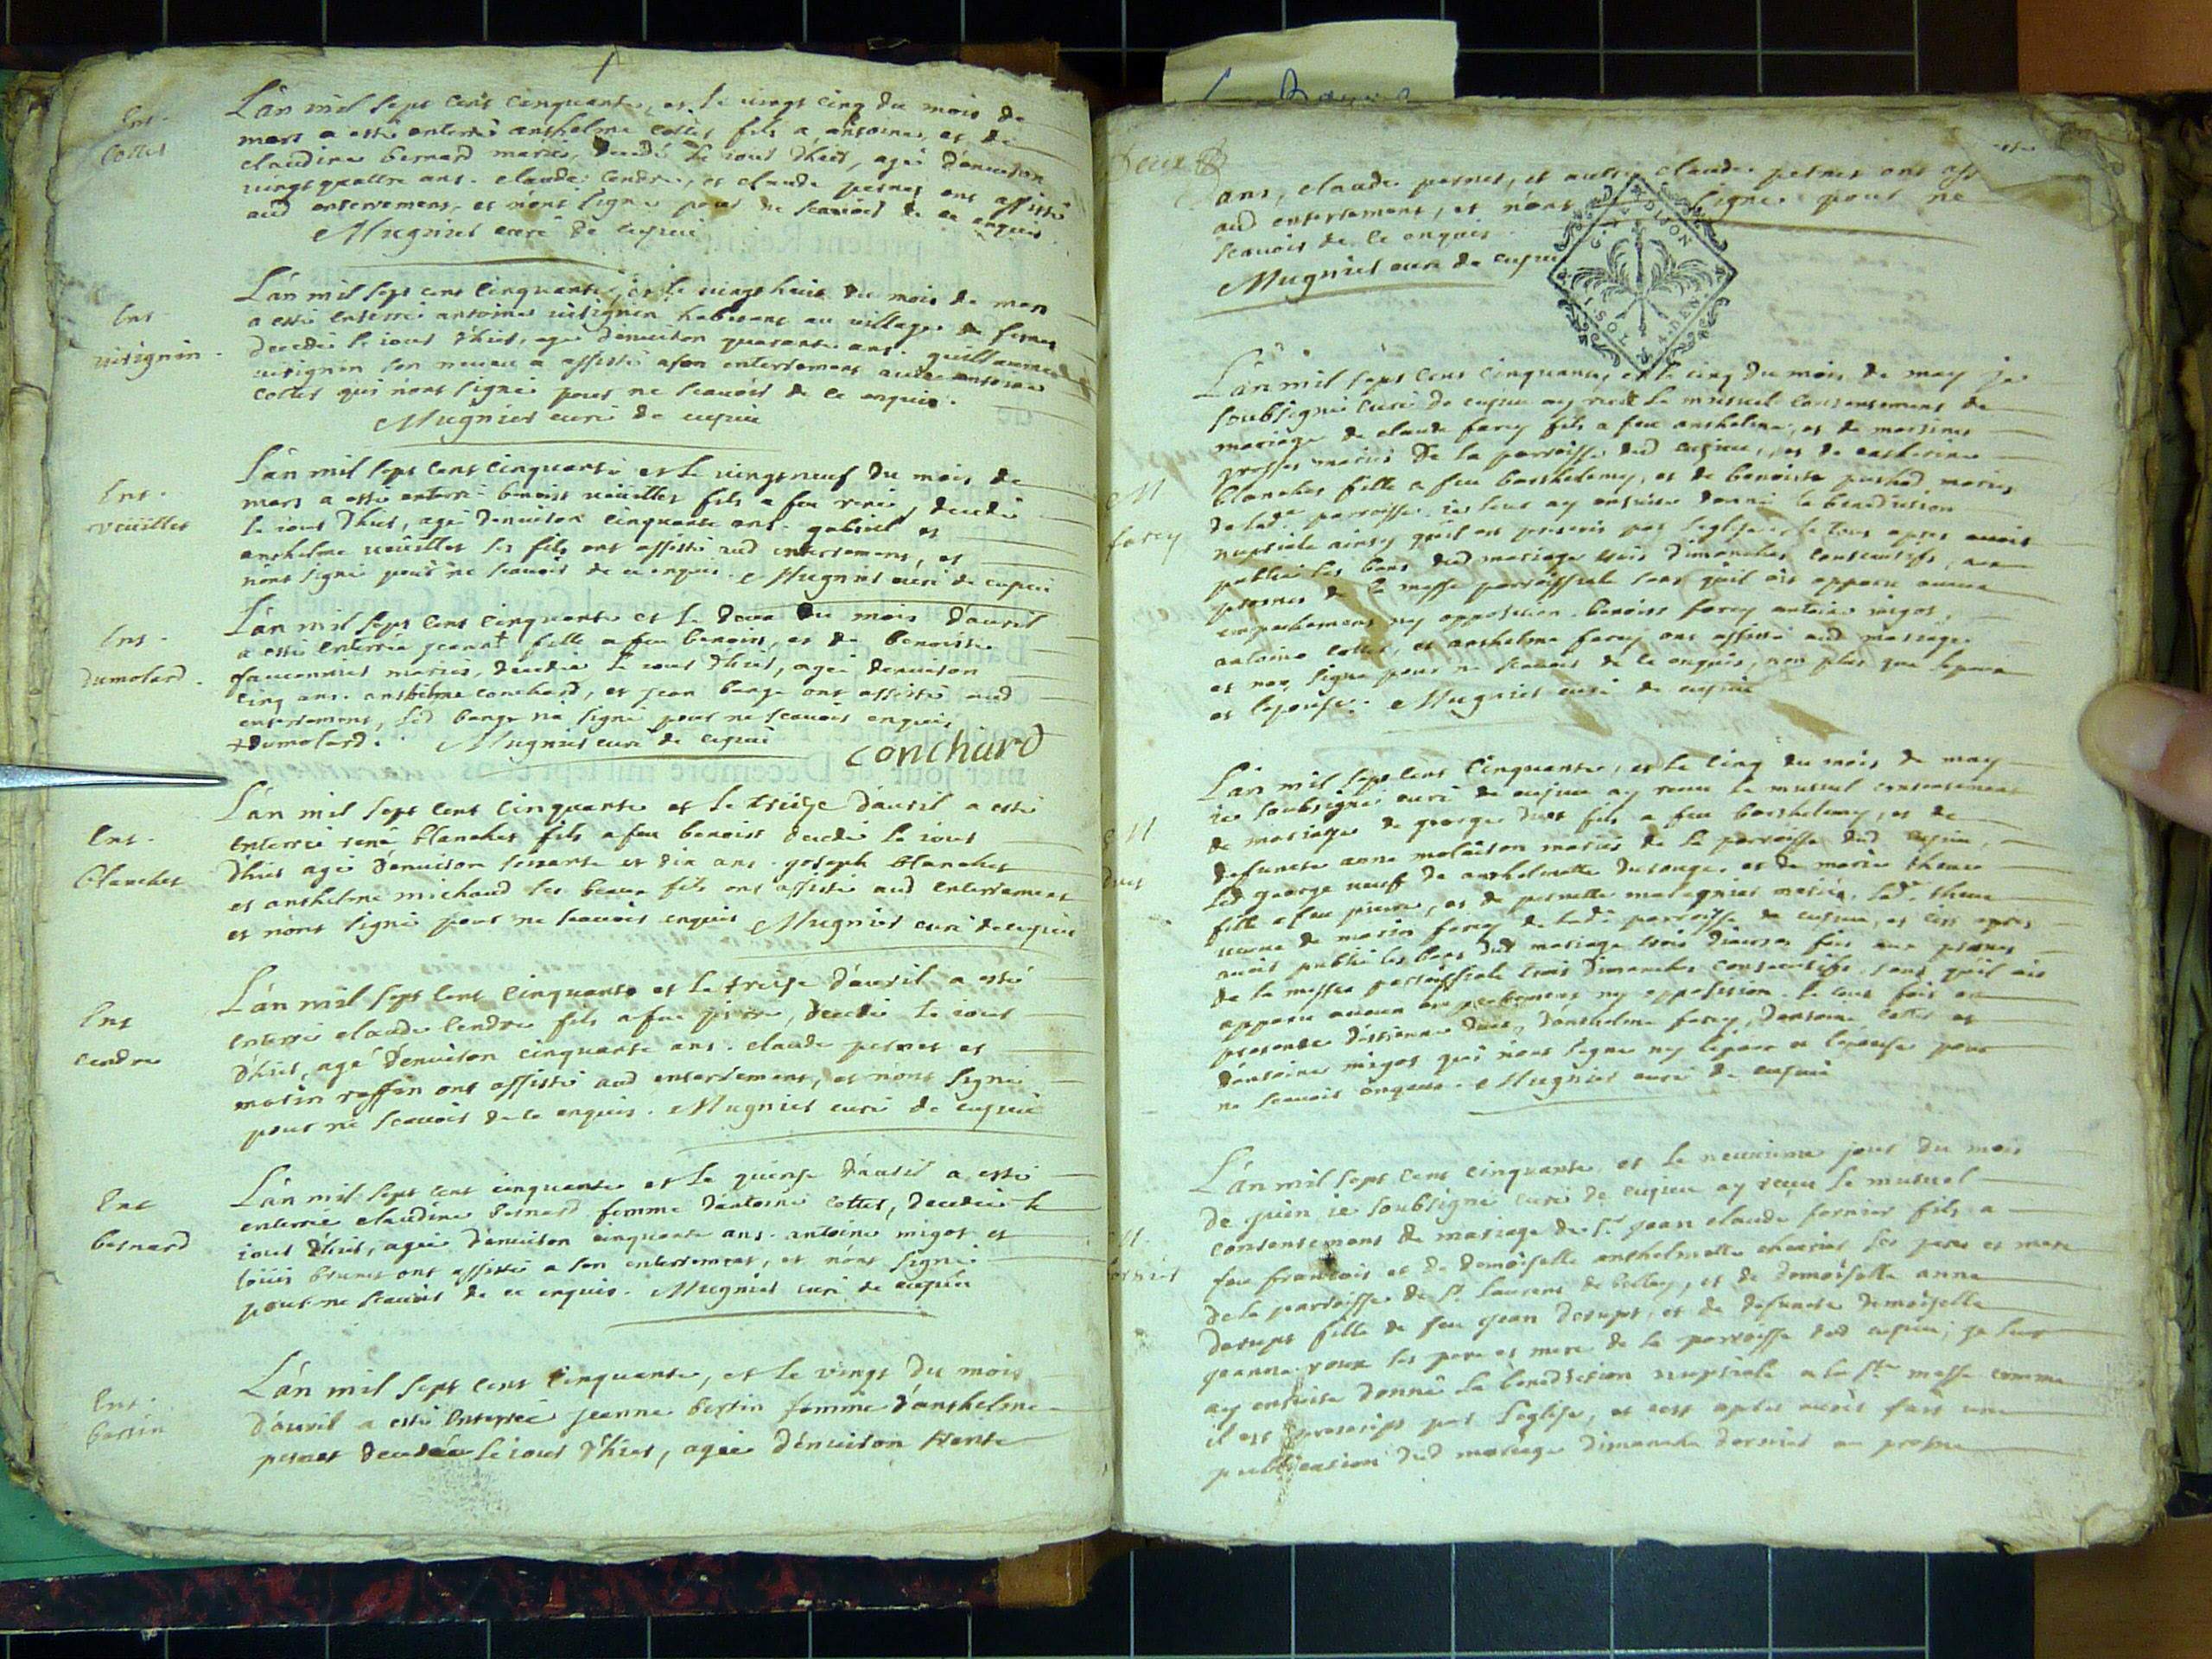 Ent.
Cottet
L'an mil sept cent cinquante, et le vingt cinq du mois de
mars a esté enterré anthelme cottet fils a antoine, et de
claudine bernard mariés, decedé le iour d'hier, agé d'environ
vingt quattre ans. claude Cendre, et claude pernet ont assisté
aud enterrement, et n'ont signé pour ne scavoir de ce enquis.
Mugnier curé de cuzieu
Ent.
vitignin.
L'an mil sept cent cinquante, et le vingt huit du mois de mars
a esté enterré antoine vitignin habitant au village de
decedé le iour d'hier, agé d'environ quarante ans. guillaume
vitignin son neveu a assisté a son enterrement avec antoine
cottet qui n'ont signé pour ne scavoir de ce enquis.
Mugnier curé de cuzieu
Ent.
veüillet
L'an mil sept cent cinquante et le vingt neuf du mois de
mars a esté enterré benoist veüillet fils a feu rené, decedé
le iour d'hier, agé d'environ cinquante ans. gabriel et
anthelme veüillet ses fils ont assisté aud enterrement, et
n'ont signé pour ne scavoir de ce enquis. Mugnier curé de cuzieu
Ent.
dumolard.
L'an mil sept cent cinquante et le deux du mois d'avril
a esté enterrée jeanne + fille a feu benoist, et de benoiste
fauconnier mariés, decedée le iour d'hier, agée d'environ
cinq ans. anthelme conchard, et jean barge ont assisté aud
enterrement, led barge n'a signé pour ne scavoir enquis
+ dumolard. Mugnier curé de cuzieu conchard
Ent.
blanchet
L'an mil sept cent cinquante et le treize d'avril a esté
enterré rené blanchet fils a feu benoist decedé le iour
d'hier agé d'environ soixante et dix ans. joseph blanchet
et anthelme michaud ses beaux fils ont assisté aud enterrement
et n'ont signé pour ne scavoir enquis Mugnier curé de cuzieu
Ent
cendre
L'an mil sept cent cinquante et le treize d'avril a esté
enterré claude Cendre fils a feu pierre, decedé le iour
d'hier, agé d'environ cinquante ans. claude pernet et
marin raffin ont assisté aud enterrement, et n'ont signé
pour ne scavoir de ce enquis. Mugnier curé de cuzieu
Ent
bernard
L'an mil sept cent cinquante et le quinze d'avril a esté
enterrée claudine bernard femme d'antoine cottet, decedée le
iour d'hier, agée d'environ cinquante ans. antoine migot et
loüis brunet ont assisté a son enterrement, et n'ont signé
pour ne scavoir de ce enquis. Mugnier curé de cuzieu
Ent.
bertin
L'an mil sept cent cinquante, et le vingt du mois
d'avril a esté enterrée jeanne bertin femme d'anthelme
pernet decedée le iour d'hier, agée d'environ trente
Deux
ans, claude pernet, et autre claude pernet ont ass
aud enterrement, et n'ont signé pour ne
scavoir de ce enquis.
Mugnier curé de cuzieu
M
farcy
L'an mil sept cent cinquante, et le cinq du mois de may je
soubsigné curé de cuzieu ay receu le mutuel consentement de
mariage de claude farcy fils a feu anthelme, et de
mariés de la parroisse dud cuzieu, et de catherine
blanchet fille a feu barthelemy, et de benoiste mariés
de lad. parroisse. ie leur ay ensuitte donné la benediction
nuptiale ainsy qu'il est prescrit par l'eglise, le tout apres avoir
publié les bans dud mariage trois dimanches consecutifs, aux
prosnes de la messe parroissiale sans qu'il ait apparu aucun
empeschement ny opposition. benoist farcy antoine migot,
antoine cottet, et anthelme farcy ont assisté aud mariage
et non signé pour ne scavoir de ce enquis, non plus que l'epoux
et l'epouse. Mugnier curé de cuzieu
M
L'an mil sept cent cinquante, et le cinq du mois de may
ie soubsigné curé de cuzieu ay receu le mutuel consentement
de mariage de george fils a feu barthelemy, et de
defuncte anne mariés de la parroisse dud cuzieu,
led george veuf de anthelmette et de marie
fille a feu pierre, et de pernette mariés, lad.
veuve de marin farcy de lad. parroisse de cuzieu, et c'est apres
avoir publié les bans dud mariage trois diverses fois aux prosnes
de la messe parroissiale trois dimanches consecutifs sans qu'il ait
apparu aucun empeschement ny opposition. le tout fait en
presence d'estienne d'anthelme farcy, d'antoine cottet et
d'antoine migot qui n'ont signé ny l'epoux ny l'epouse pour
ne scavoir enquis. Mugnier curé de cuzieu
M
fornier
L'an mil sept cent cinquante, et le neuvieme jour du mois
de juin ie soubsigné curé de cuzieu ay receu le mutuel
consentement de mariage de Sr jean claude fornier fils a
feu francois et de demoiselle anthelmette ses pere et mere
de la parroisse de St laurent de belley, et de demoiselle anne
derupt fille de feu jean derupt, et de defuncte demoiselle
jeanne roux ses pere et mere de la parroisse dud cuzieu; je leur
ay ensuite donné la benediction nuptiale a la Ste messe comme
il est prescript par l'eglise, et c'est aprés avoir fait une
publication dud mariage dimanche dernier au prosne